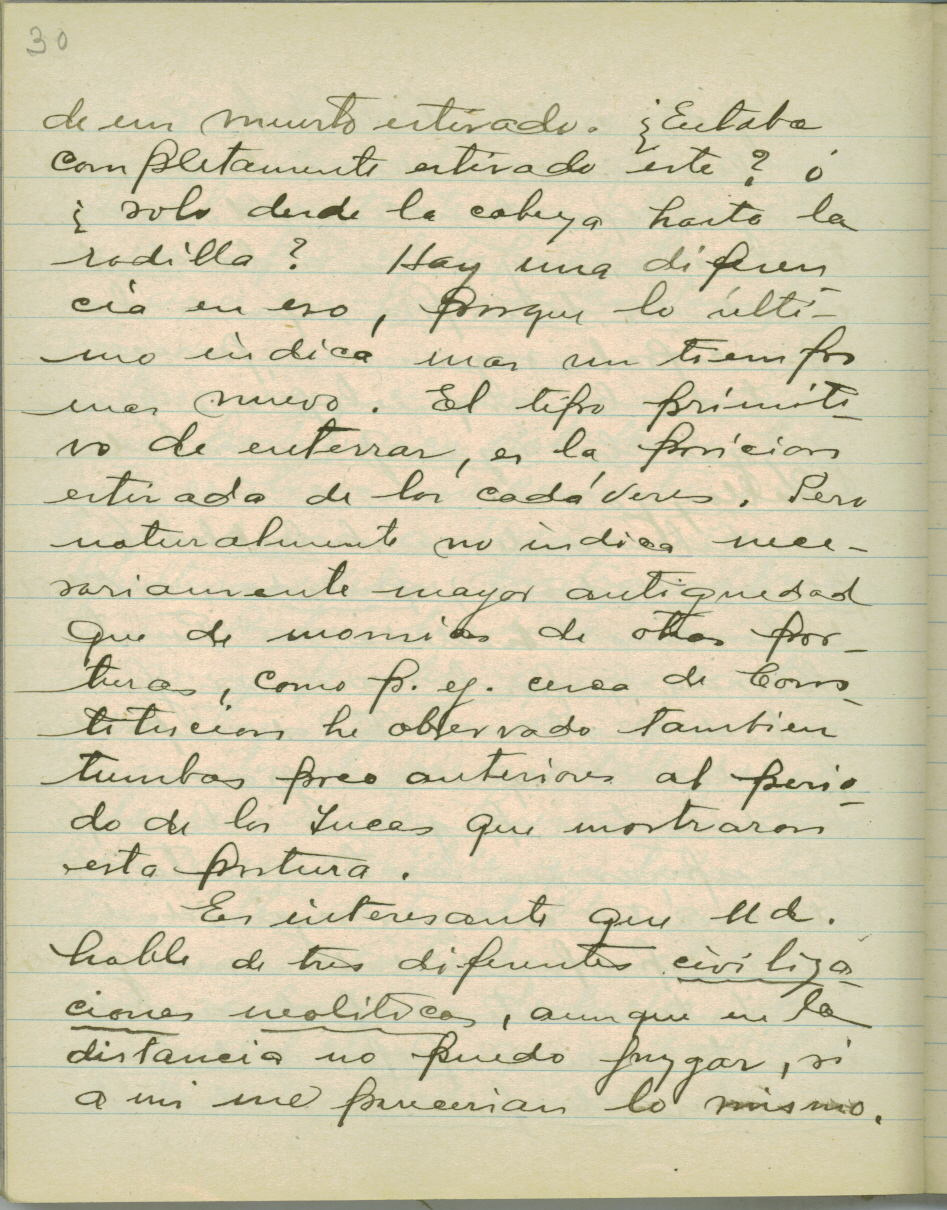 30
de un muerto estirado. ¿Estaba
completamente estirado este? ó
¿ solo desde la cabeza hasta la
rodilla? Hay una diferen
cia en eso, porque lo ulti-
mo indica mas un tiempo
mas nuevo. El tipo primiti-
vo de enterrar, es la posicion
estirada de los cadáveres. Pero
naturalmente no indica nece-
sariamente mayor antiguedad
que de momias de otras pos-
turas, como p. ej. cerca de Cons-
titucion he observado tambien
tumbas anteriores al perio-
do de los Incas que mostraron
esta postura.
Es interesante que Ud.
hable de tres diferentes civiliza-
ciones neolíticas, aunque en la
distancia no puedo juzgar, si
a mi me parecerian lo mismo.